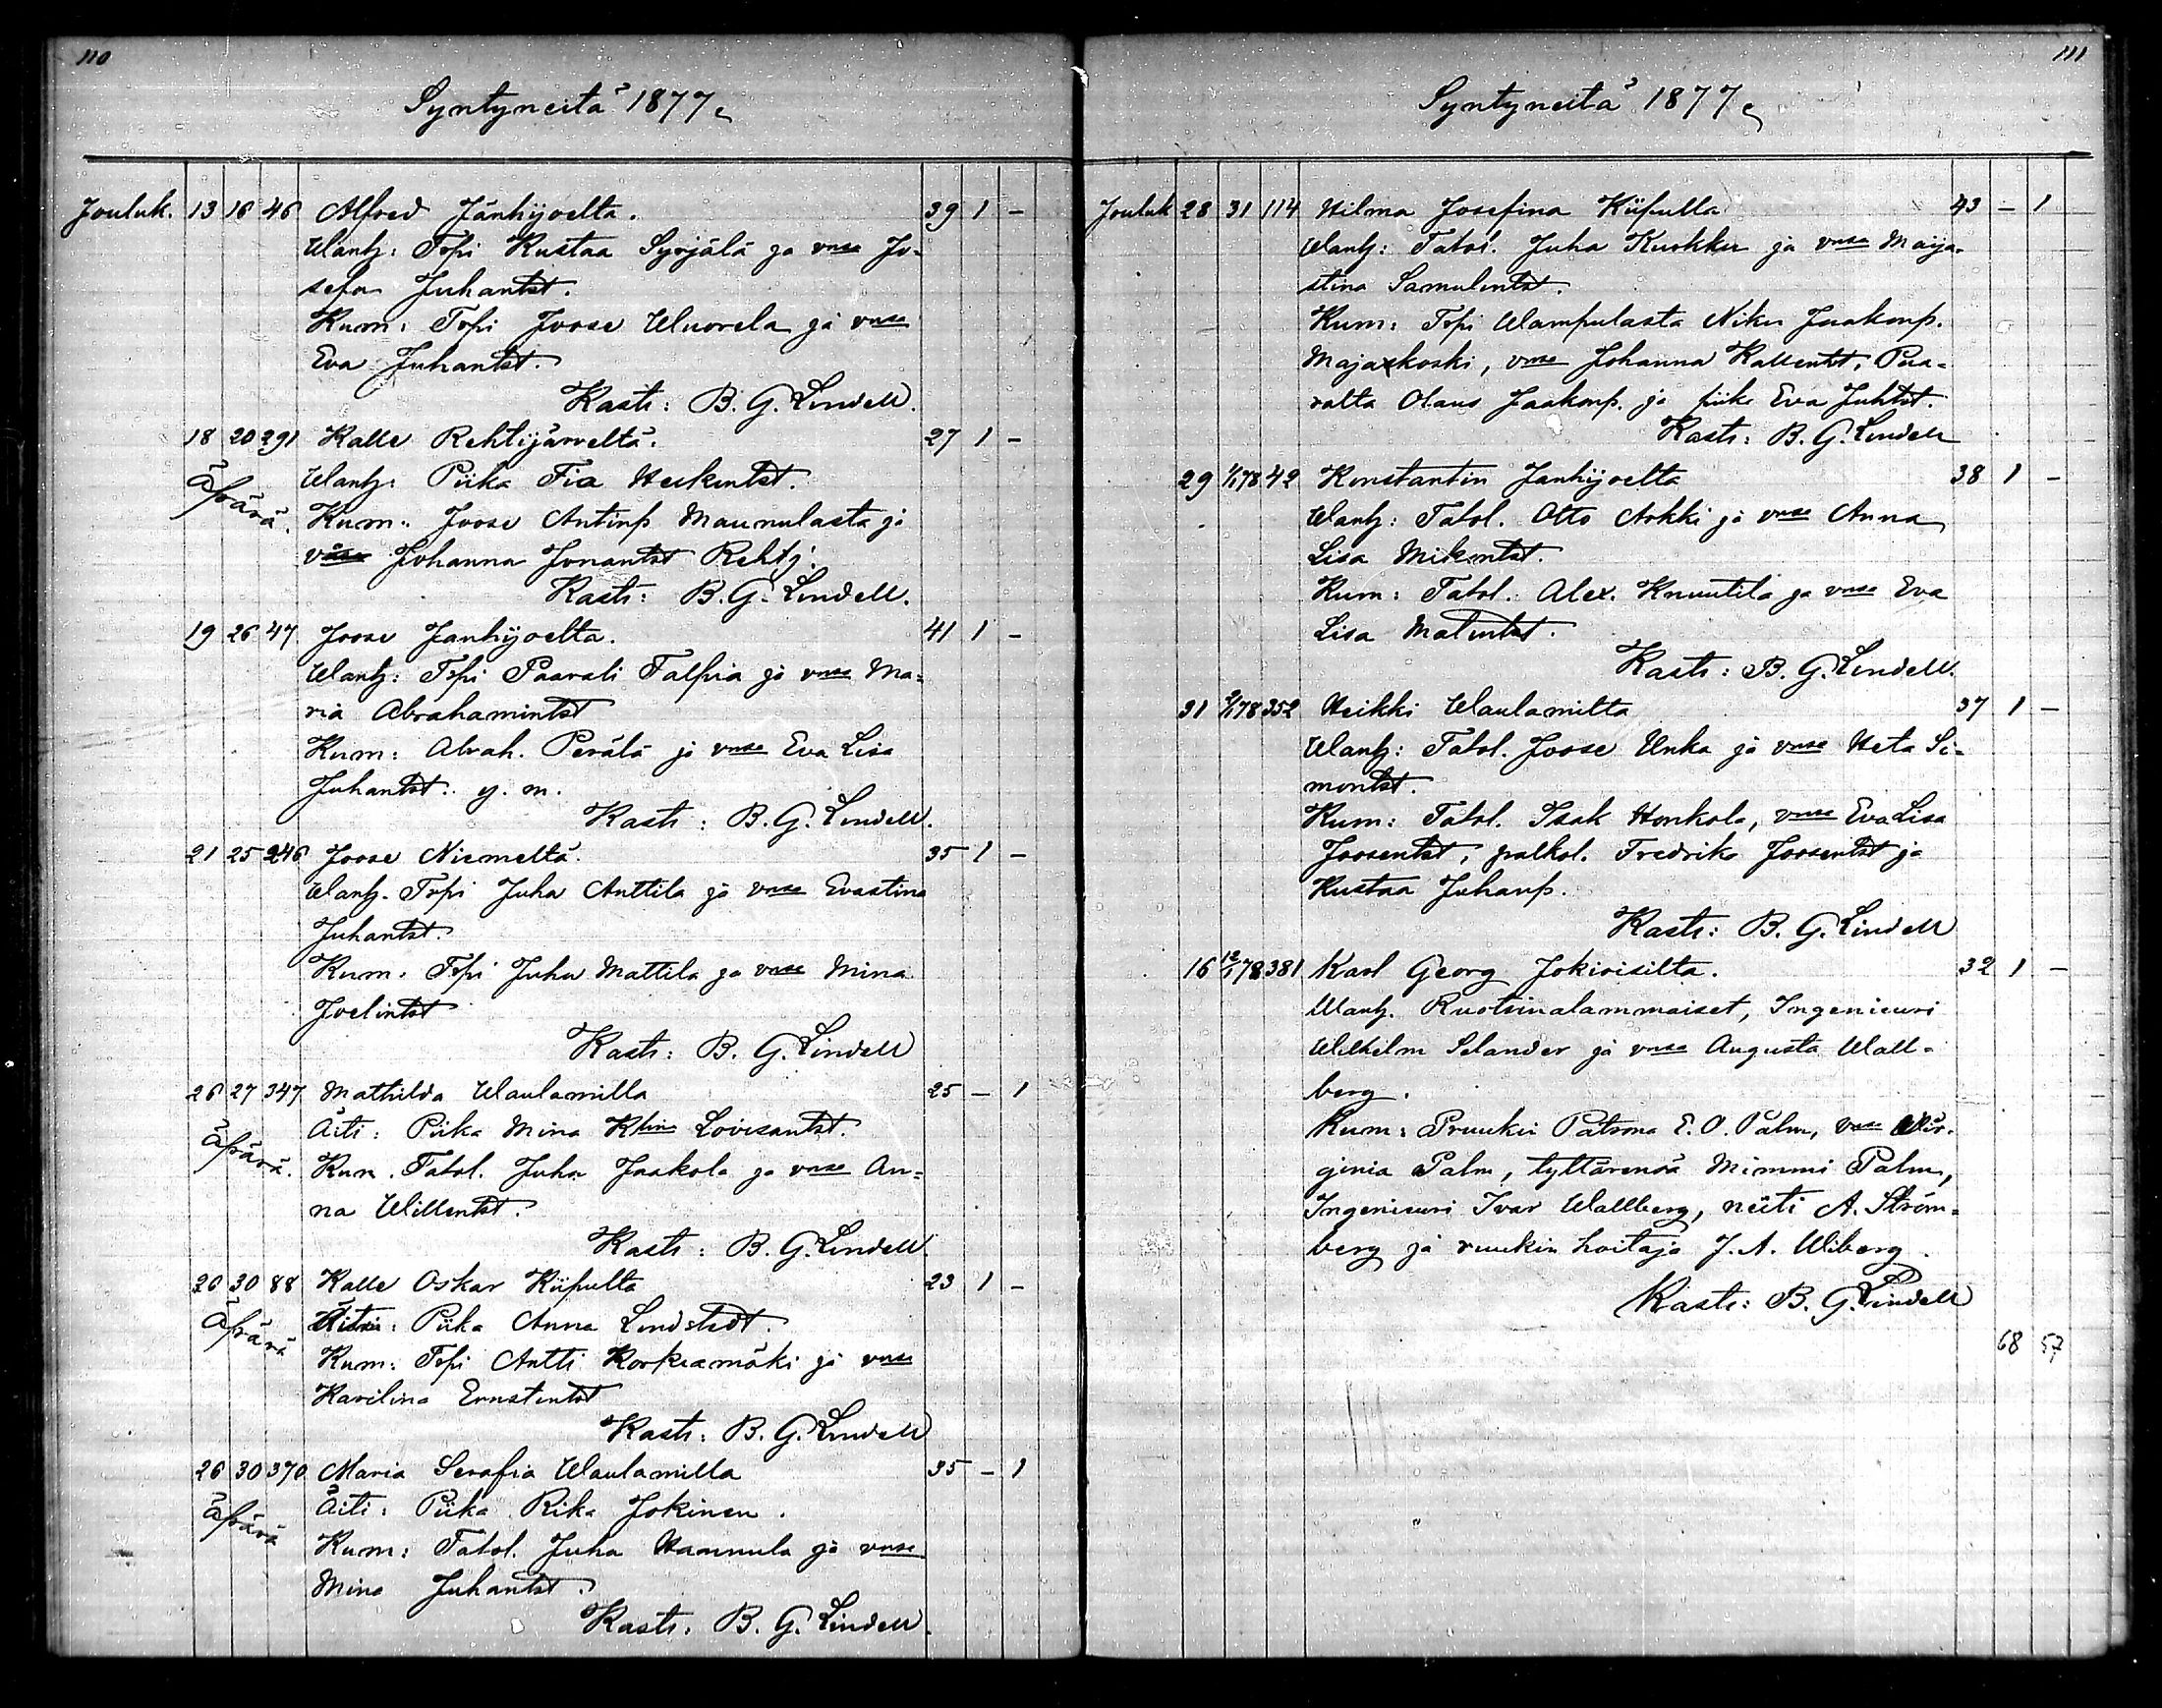 110
Syntyneitä 1877
Jouluk. 13 16 46 Alfred Jänhijoelta. 39 1 -
Wanh: Tspi Kustaa Syrjälä ja vmsa Jo-
sefa Juhantst.
Kum: Tspi Joose Wuorela ja vmsa
Eva Juhantst.
Kasti: B. G. Lindell.
18 20 291 Kalle Rehtijärveltä. 27 1 -
Äpärä. Wanh: Piika Fia Heikintst.
Kum: Joose Antinp. Maunulasta ja
Johanna Jonantst Rehtj.
Kasti: B. G. Lindell.
19 26 47 Joose Janhijoelta. 41 1 -
Wanh: Tspi Paavali Talpia ja vmsa Ma-
ria Abrahamintst
Kum: Abrah. Perälä ja vmsa Eva Lisa
Juhantst. y. m.
Kasti: B. G. Lindell.
21 25 246 Joose Niemeltä. 35 1 -
Wanh. Tspi Juha Anttila ja vmsa Evastina
Juhantst.
Kum. Tspi Juha Mattila ja vmsa Mina
Joelintst
Kasti: B. G. Lindell
26 27 347 Mathilda Waulamilla 25 - 1
Äpärä. Äiti: Piika Mina Klina Lovisantst.
Kum. Tatol. Juha Jaakola ja vmsa An-
na Willentst.
Kasti: B. G. Lindell.
26 30 88 Kalle Oskar Kiipulta 23 1 -
Äpärä Äiti: Piika Anna Lindstedt.
Kum: Tspi Antti Korkeamäki ja vmsa
Karolina Ernstintst
Kasti: B. G. Lindell
26 30 370 Maria Serafia Waulamilla 35 - 1
Äpärä Äiti: Piika Rika Jokinen.
Kum: Tatol. Juha Hannula ja vmsa
Mina Juhantst.
Kasti. B. G. Lindell.
111
Syntyneitä 1877
Jouluk 28 31 114 Hilma Josefina Kiipulla 43 - 1
Wanh: Tatol. Juha Kuokka ja vmsa Maija-
stina Samulintst.
Kum: Tspi Wampulasta Niku Jaakonp.
Majaskoski, vmsa Johanna Kallentst, Paa-
valta Olaus Jaakonp. ja piika Eva Juhtst.
Kasti: B. G. Lindell
29 1/1 78 42 Konstantin Janhijoelta 38 1 -
Wanh: Tatol. Otto Arkki ja vmsa Anna
Lisa Mikontst.
Kum: Tatol. Alex. Knuutila ja vmsa Eva
Lisa Matintst.
Kasti: B. G. Lindell.
31 2/1 78 352 Heikki Waulamilta 37 1 -
Wanh: Tatol. Joose Unka ja vmsa Heta Si-
montst.
Kum: Tatol. Isak Honkola, vmsa Eva Lisa
Joosentst, palkol. Fredrika Joosentst ja
Kustaa Juhanp.
Kasti: B. G. Lindell
16 12/1 78 381 Karl Georg Jokioisilta. 32 1 -
Wanh. Ruotsinalammaiset, Ingenieuri
Wilhelm Selander ja vmsa Augusta Wall-
berg.
Kum: Pruukin Patrona E. O. Palm, vmsa Wir-
ginia Palm, tyttärensä Mimmi Palm,
Ingenieuri Ivar Wallberg, neiti A. Ström-
berg ja ruukin hoitaja J. A. Wiberg.
Kasti: B. G. Lindell
68 57